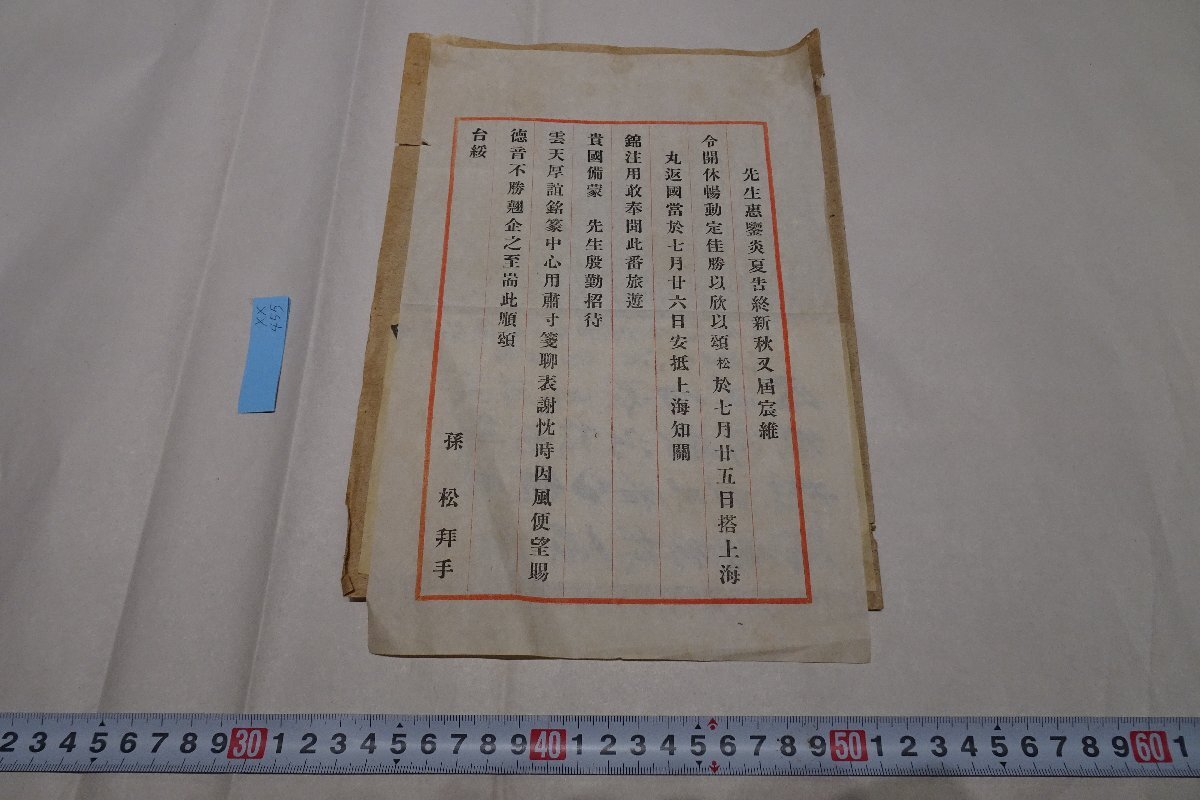 先生惠鑒炎夏告終新秋又屆宸維
令開休暢動定佳勝以欣以頌松於七月廿五日搭上海
丸返國當於七月廿六日安抵上海知關
錦注用敢奉聞此番旅遊
貴國備蒙　先生殷勤招待
雲天厚誼銘篆中心用肅寸箋聊表謝忱時因風便望賜
德音不勝翹企之至耑此順頌
台綏
孫　松拜手
XX
455
2 3 4 5 6 7 8 9 30 1 2 3 4 5 6 7 8 9 40 1 2 3 4 5 6 7 8 9 50 1 2 3 4 5 6 7 8 9 60 1